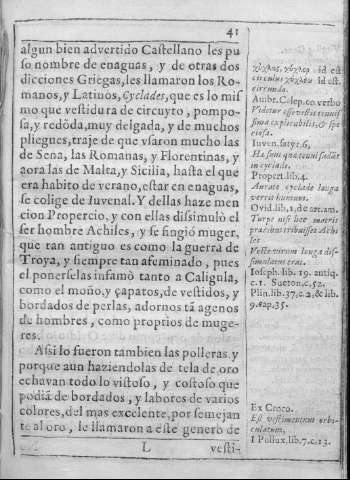 41
algun bien advertido Castellano les pu
so nombre de enaguas, y de otras dos
dicciones Griegas, les llamaron los Ro-
manos, y Latinos, Cyclades, que es lo mis
mo que vestidura de circuyto, pompo-
sa, y redõda, muy delgada, y de muchos
pliegues, traje de que vsaron mucho las
de Sena, las Romanas, y Florentinas, y
aora las de Malta, y Sicilia, hasta el que
era habito de verano, estar en enaguas,
se colige de Iuvenal. Y dellas haze men
cion Propercio, y con ellas dissimulò el
ser hombre Achiles, y se fingió muger,
que tan antiguo es como la guerra de
Troya, y siempre tan afeminado, pues
el ponerselas infamò tanto a Caligula,
como el moño, y çapatos, de vestidos, y
bordados de perlas, adornos tã agenos
de hombres, como proprios de muge-
res.
Assi lo fueron tambien las polleras, y
porque aun haziendolas de tela de oro
echavan todo lo vistoso, y costoso que
podiã de bordados, y labores de varios
colores, del mas excelente, por semejan
te al oro, le llamaron a este genero de
L vesti-
id est
circulus id est.
circunda.
Aubr. Calep. co. verbo
Videtur esse vestis tenuis
sima explicabilis, & spe
ciosa.
Iuven. satyr. 6,
Hæ sunt quæ tenui sudant
in cyclade.
Propert. lib. 4.
Aurata cyclade longa
verrat humum.
Ovid. lib. 1, de art. am.
Turpe nisi hoc matris
precibus tribuisset Achi
lles
Veste virum longa dis-
simulatus erat.
Ioseph. lib. 19. antiq.
c. 1. Sueton. c. 52.
Plin. lib. 37. c. 2, & lib.
9. cap. 35.
Ex Croco.
Est vestimentum orbi-
culatum,
I Pollux. lib. 7. c. 13.